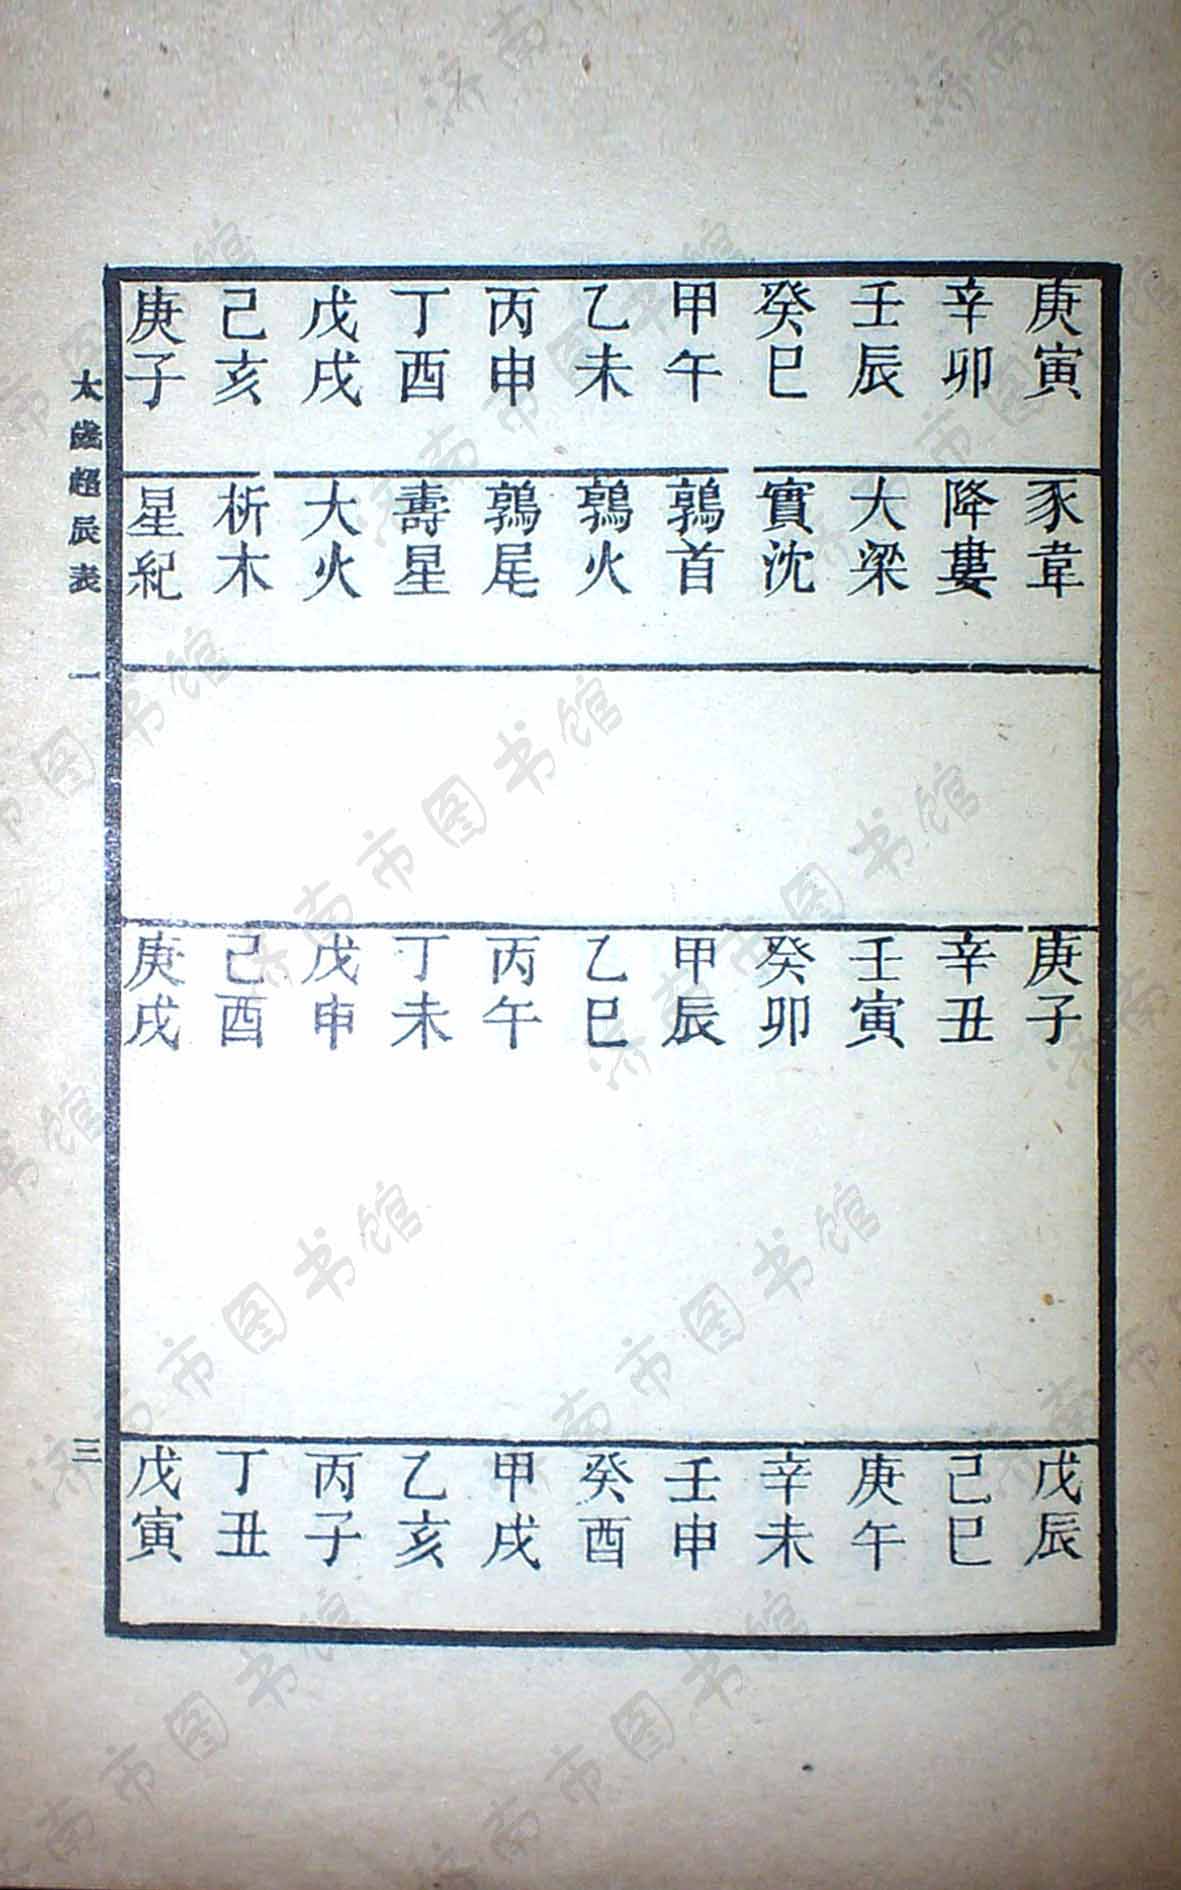 庚寅 豕韋 庚子 戊辰
辛卯 降婁 辛丑 己巳
壬辰 大梁 壬寅 庚午
癸巳 實沈 癸卯 辛未
甲午 鶉首 甲辰 壬申
乙未 鶉火 乙巳 癸酉
丙申 鶉尾 丙午 甲戌
丁酉 壽星 丁未 乙亥
戊戌 大火 戊申 丙子
己亥 析木 己酉 丁丑
庚子 星紀 庚戌 戊寅
太歲超辰表 一 三
济南市图书馆